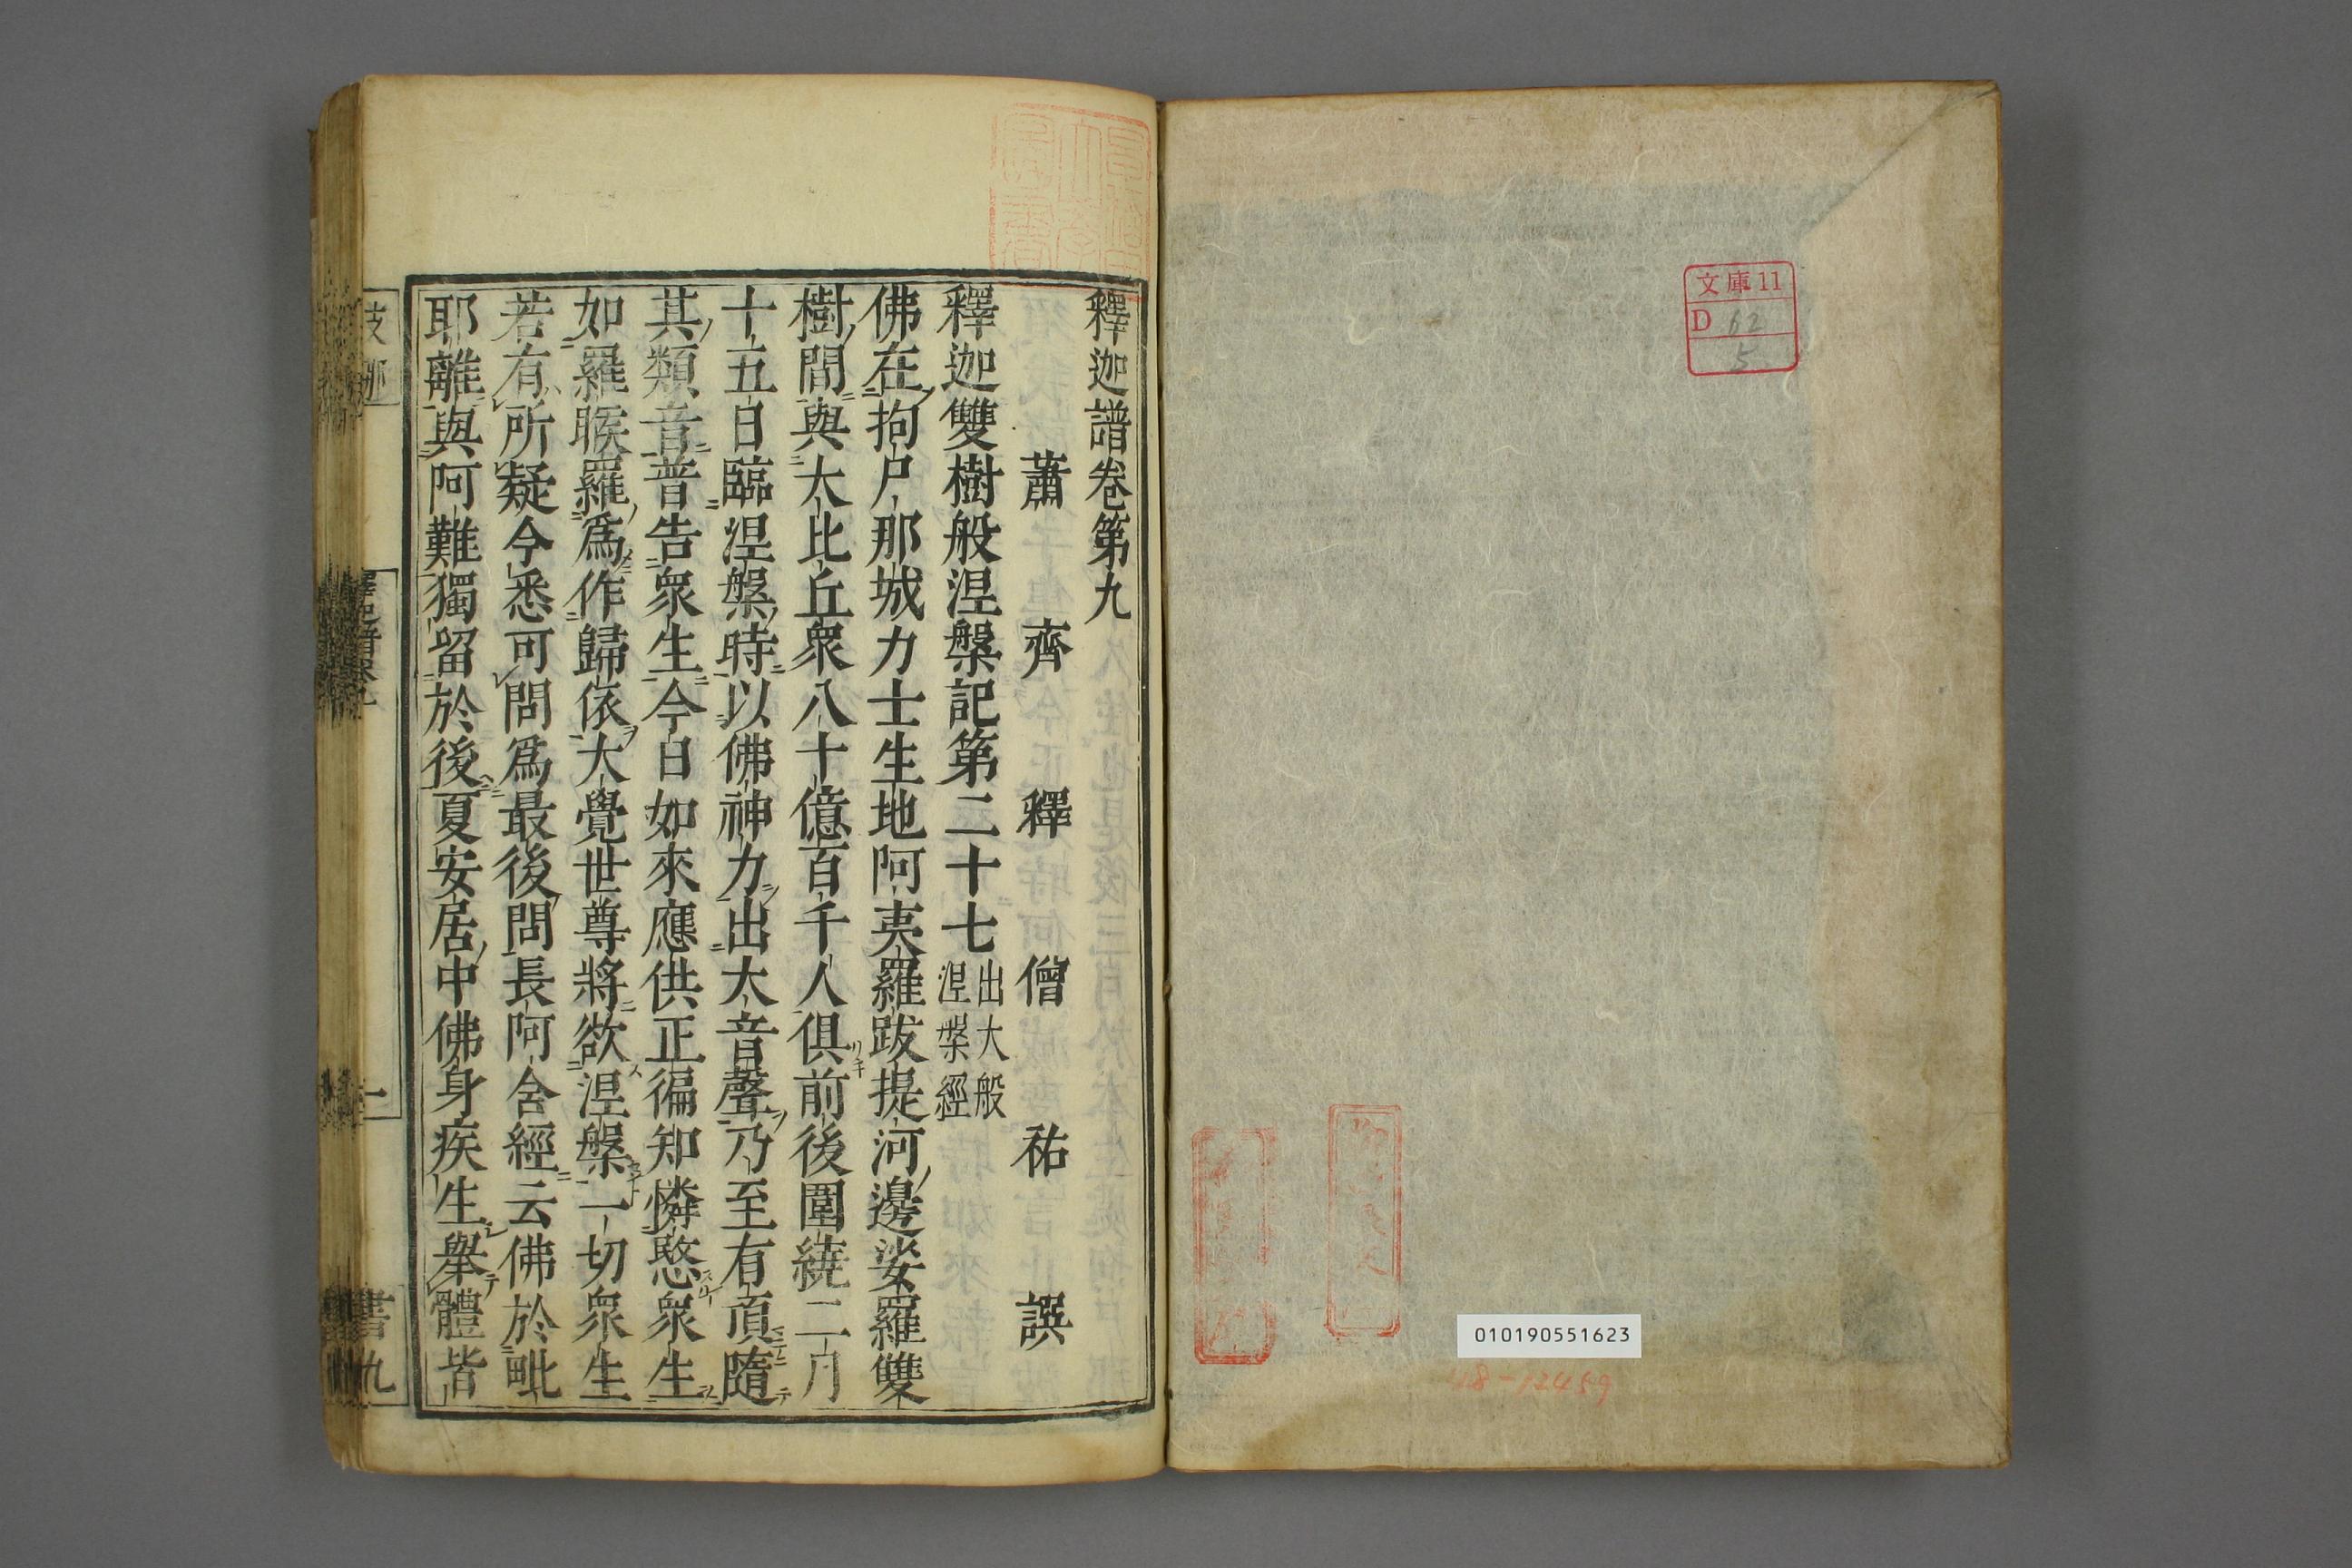 文庫11
D 62
5
010190551623
48-12489
釋迦譜卷第九
蕭齊釋僧祐譔
釋迦雙樹般涅槃記第二十七 出大般涅槃經
佛在拘尸那城力士生地阿夷羅跋提河邊娑羅雙
樹間與大比丘衆八十億百千人俱前後圍繞二月
十五日臨涅槃時以佛神力出大音聲乃至有頂隨
其類音普告衆生今日如來應供正徧知憐愍衆生
如羅睺羅爲作歸依大覺世尊將欲涅槃一切衆生
若有所疑今悉可問爲最後問長阿含經云佛於毗
耶離與阿難獨留於後夏安居中佛身疾生舉體皆